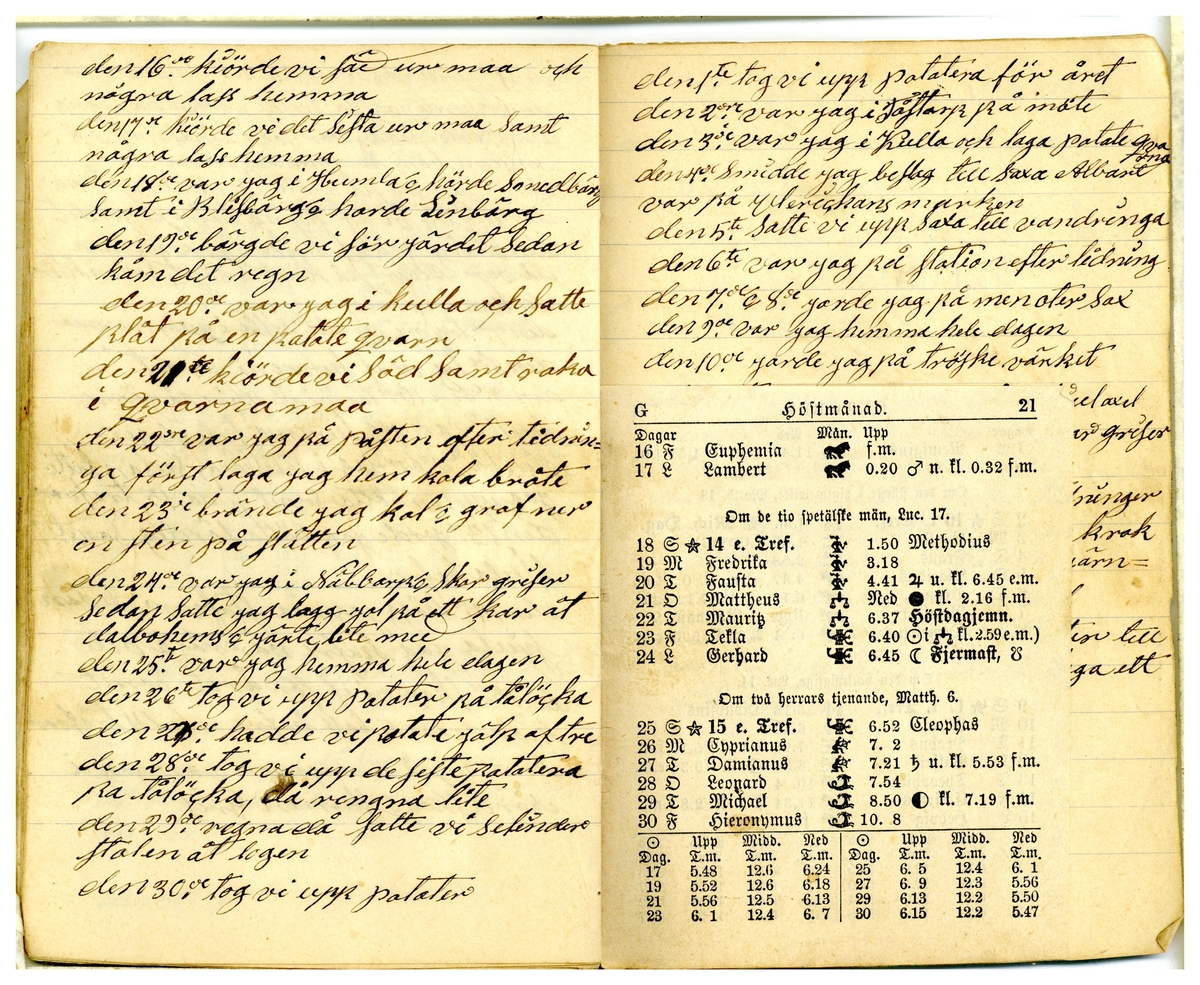 den 16de kiörde vi säd ur maa och
några lass hemma
den 17de kiörde vi det sista ur maa samt
några lass hemma
den 18de var yag i Humla & hörde Smedbärg
samt i Klisbärg & horde Linbärg
den 19de bärgde vi för gärdet sedan
kåm det regn
den 20de var yag i kulla och satte
plåt på en patate qvarn
den 21te kiörde vi säd samt raka
i qvarnamaa
den 22dre var yag på påsten efter tidnin=
ga först laga yag hem kola bråte
den 23je brände yag kol & grof ner
en sten på slåtten
den 24de var yag i Näbbarp & skar griser
sedan satte yag lagg yol på ett kar åt
dalbohems & gärte lite mee
den 25te var yag hemma hele dagen
den 26te tog vi upp potater på tålöcka
den 27de hadde vi potate gälp af tre
den 28de tog vi upp de siste patatera
på tålöcka, då rengna lite
den 29de regna då satte vi selinder
stolen åt logen
den 30de tog vi upp patater
den 1te tog vi upp patatera för året
den 2dre var yag i Tåstarp på möte
den 3je var yag i Kulla och laga patate qva
rna
den 4de smidde yag beslag till Saxa Albært
var på yterichans marken
den 5te satte vi upp saxa till vandringa
den 6te var yag på station efter tidning
den 7de & 8de gorde yag på menoter sax
den 9de var yag hemma hele dagen
den 10de garde yag på tröske värket
axel
griser
krok
ärn=
till
ga ett
G Höstmånad. 21
Dagar Mån. Upp
16 F Euphemia f.m.
17 L Lambert 0.20 ♂ n. kl. 0.32 f.m.
Om de tio spetälske män, Luc. 17.
18 S ☆ 14 e. Tref. 1.50 Methodius
19 M Fredrika 3.18
20 T Fausta 4.41 ♃ u. kl. 6.45 e.m.
21 O Mattheus ♎ Ned ● kl. 2.16 f.m.
22 T Mauritz ♎ 6.37 Höstdagjemn.
23 F Tekla 6.40 ☉ i ♎ kl. 2.59 e.m.)
24 L Gerhard 6.45 ☾ Fjermast, ☋
Om två herrars tjenande, Matth. 6.
25 S ☆ 15 e. Tref. 6.52 Cleophas
26 M Cyprianus 7. 2
27 T Damianus 7.21 ♄ u. kl. 5.53 f.m.
28 O Leonard 7.54
29 T Michael 8.50 ◐ kl. 7.19 f.m.
30 F Hieronymus 10. 8
☉ Upp Midd. Ned ☉ Upp Midd. Ned
Dag. T.m. T.m. T.m. Dag. T.m. T.m. T.m.
17 5.48 12.6 6.24 25 6. 5 12.4 6. 1
19 5.52 12.6 6.18 27 6. 9 12.3 5.56
21 5.56 12.5 6.13 29 6.13 12.2 5.50
23 6. 1 12.4 6. 7 30 6.15 12.2 5.47